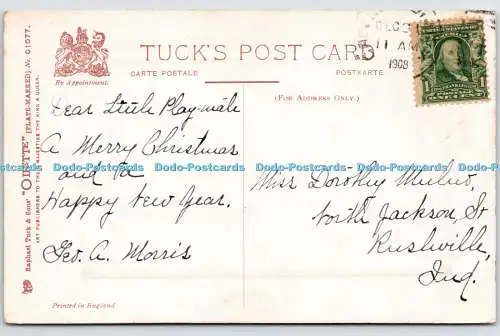 TUCK'S POST CARD
CARTE POSTALE
POSTKARTE
By Appointment.
(FOR ADDRESS ONLY.)
Raphael Tuck & Sons' "OILETTE" [PLATE-MARKED] No. G1077.
ART PUBLISHERS TO THEIR MAJESTIES THE KING & QUEEN.
DEC
11 AM
1908
Dear Little Play-mate
A Merry Christmas
and a
Happy New Year.
Geo. A. Morris
Miss Dorothy
North Jackson, St
Rushville
Ind.
Printed in England
Dodo-Postcards Dodo-Postcards Dodo-Postcards Dodo-Postcards Dodo-Postcards